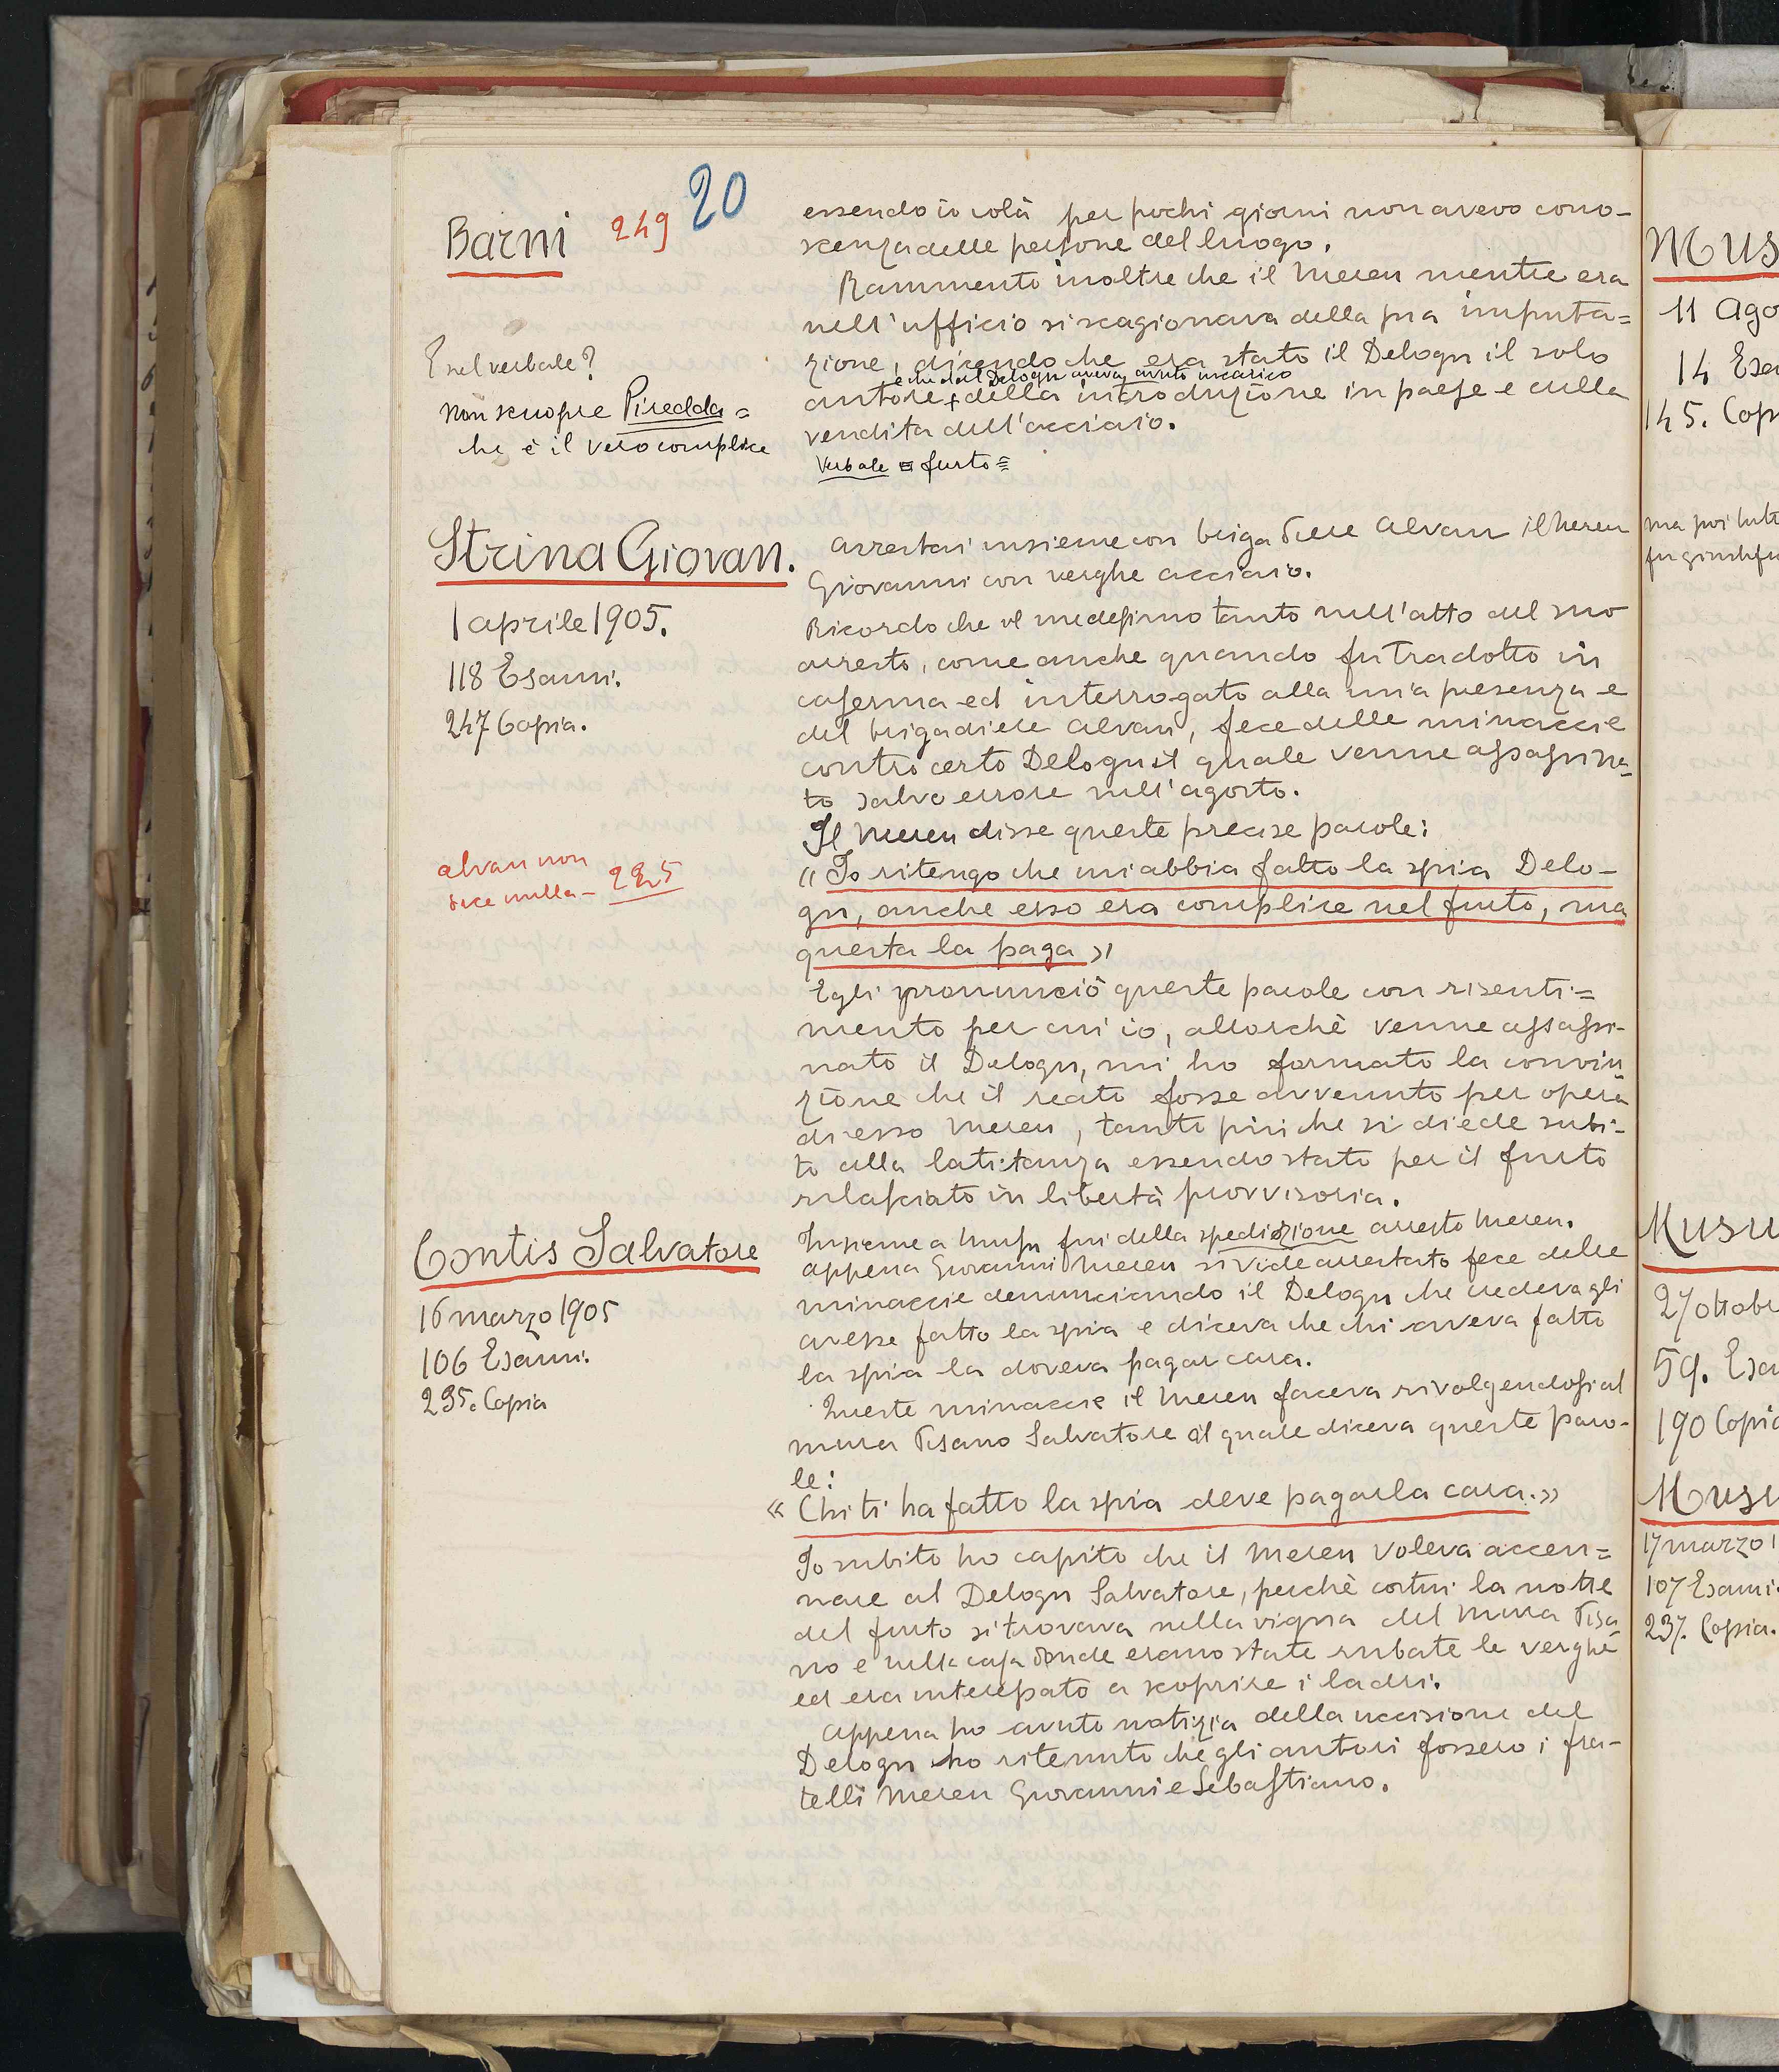 Barni 249 20
essendo io colà per pochi giorni non avevo cono-
scenza delle persone del luogo.
Rammento inoltre che il Mereu mentre era
nell'ufficio si scagionava della sua imputa=
zione, dicendo che era stato il Delogu il solo
e che dal Delogu aveva avuto incarico
autore + della introduzione in paese e della
vendita dell'acciaio.
Verbale furto
E nel verbale?
non scuopre Piredda =
che è il vero complice
Strina Giovan.
1 aprile 1905.
118 Esami.
247 Copia.
Arrestai insieme con brigadiere Alvau il Mereu
Giovanni con verghe acciaio.
Ricordo che il medesimo tanto nell'atto del suo
arresto, come anche quando fu tradotto in
caserma ed interrogato alla mia presenza e
del brigadiere Alvau, fece delle minaccie
contro certo Delogu il quale venne assassina=
to salvo errore nell'agosto.
Il Mereu disse queste precise parole:
alvau non
dice nulla - 225
"Io ritengo che mi abbia fatto la spia Delo-
gu, anche esso era complice nel furto, ma
questa la paga"
Egli pronunciò queste parole con risenti=
mento per cui io, allorchè venne assassi-
nato il Delogu, mi ho formato la convin
zione che il reato fosse avvenuto per opera
di esso Mereu, tanto più che si diede subi-
to alla latitanza essendo stato per il furto
rilasciato in libertà provvisoria.
Contis Salvatore
16 marzo 1905
106 Esami.
235. Copia
Insieme a fui della spedizione arresto Mereu.
appena Giovanni Mereu si vide arrestato fece delle
minaccie denunciando il Delogu che credeva gli
avesse fatto la spia e diceva che chi aveva fatto
la spia la doveva pagar cara.
Queste minaccie il Mereu faceva rivolgendosi al
Murra Tisano Salvatore il quale diceva queste paro-
le:
« Chi ti ha fatto la spia deve pagarla cara.»
Io subito ho capito che il Mereu voleva accen=
nare al Delogu Salvatore, perchè costui la notte
del furto si trovava nella vigna del Murra Tisa
no e nella casa donde erano state rubate le verghe
ed era interessato a scoprire i ladri.
Appena ho avuto notizia della uccisione del
Delogu ho ritenuto che gli autori fossero i fra-
telli Mereu Giovanni e Sebastiano.
Mus
11 Ago
14 Esa
145. Cop
ma poi tutt
Musu
27 ottobr
59. Esa
190 Copia
Musu
17 marzo 1
107 Esami.
237. Copia.